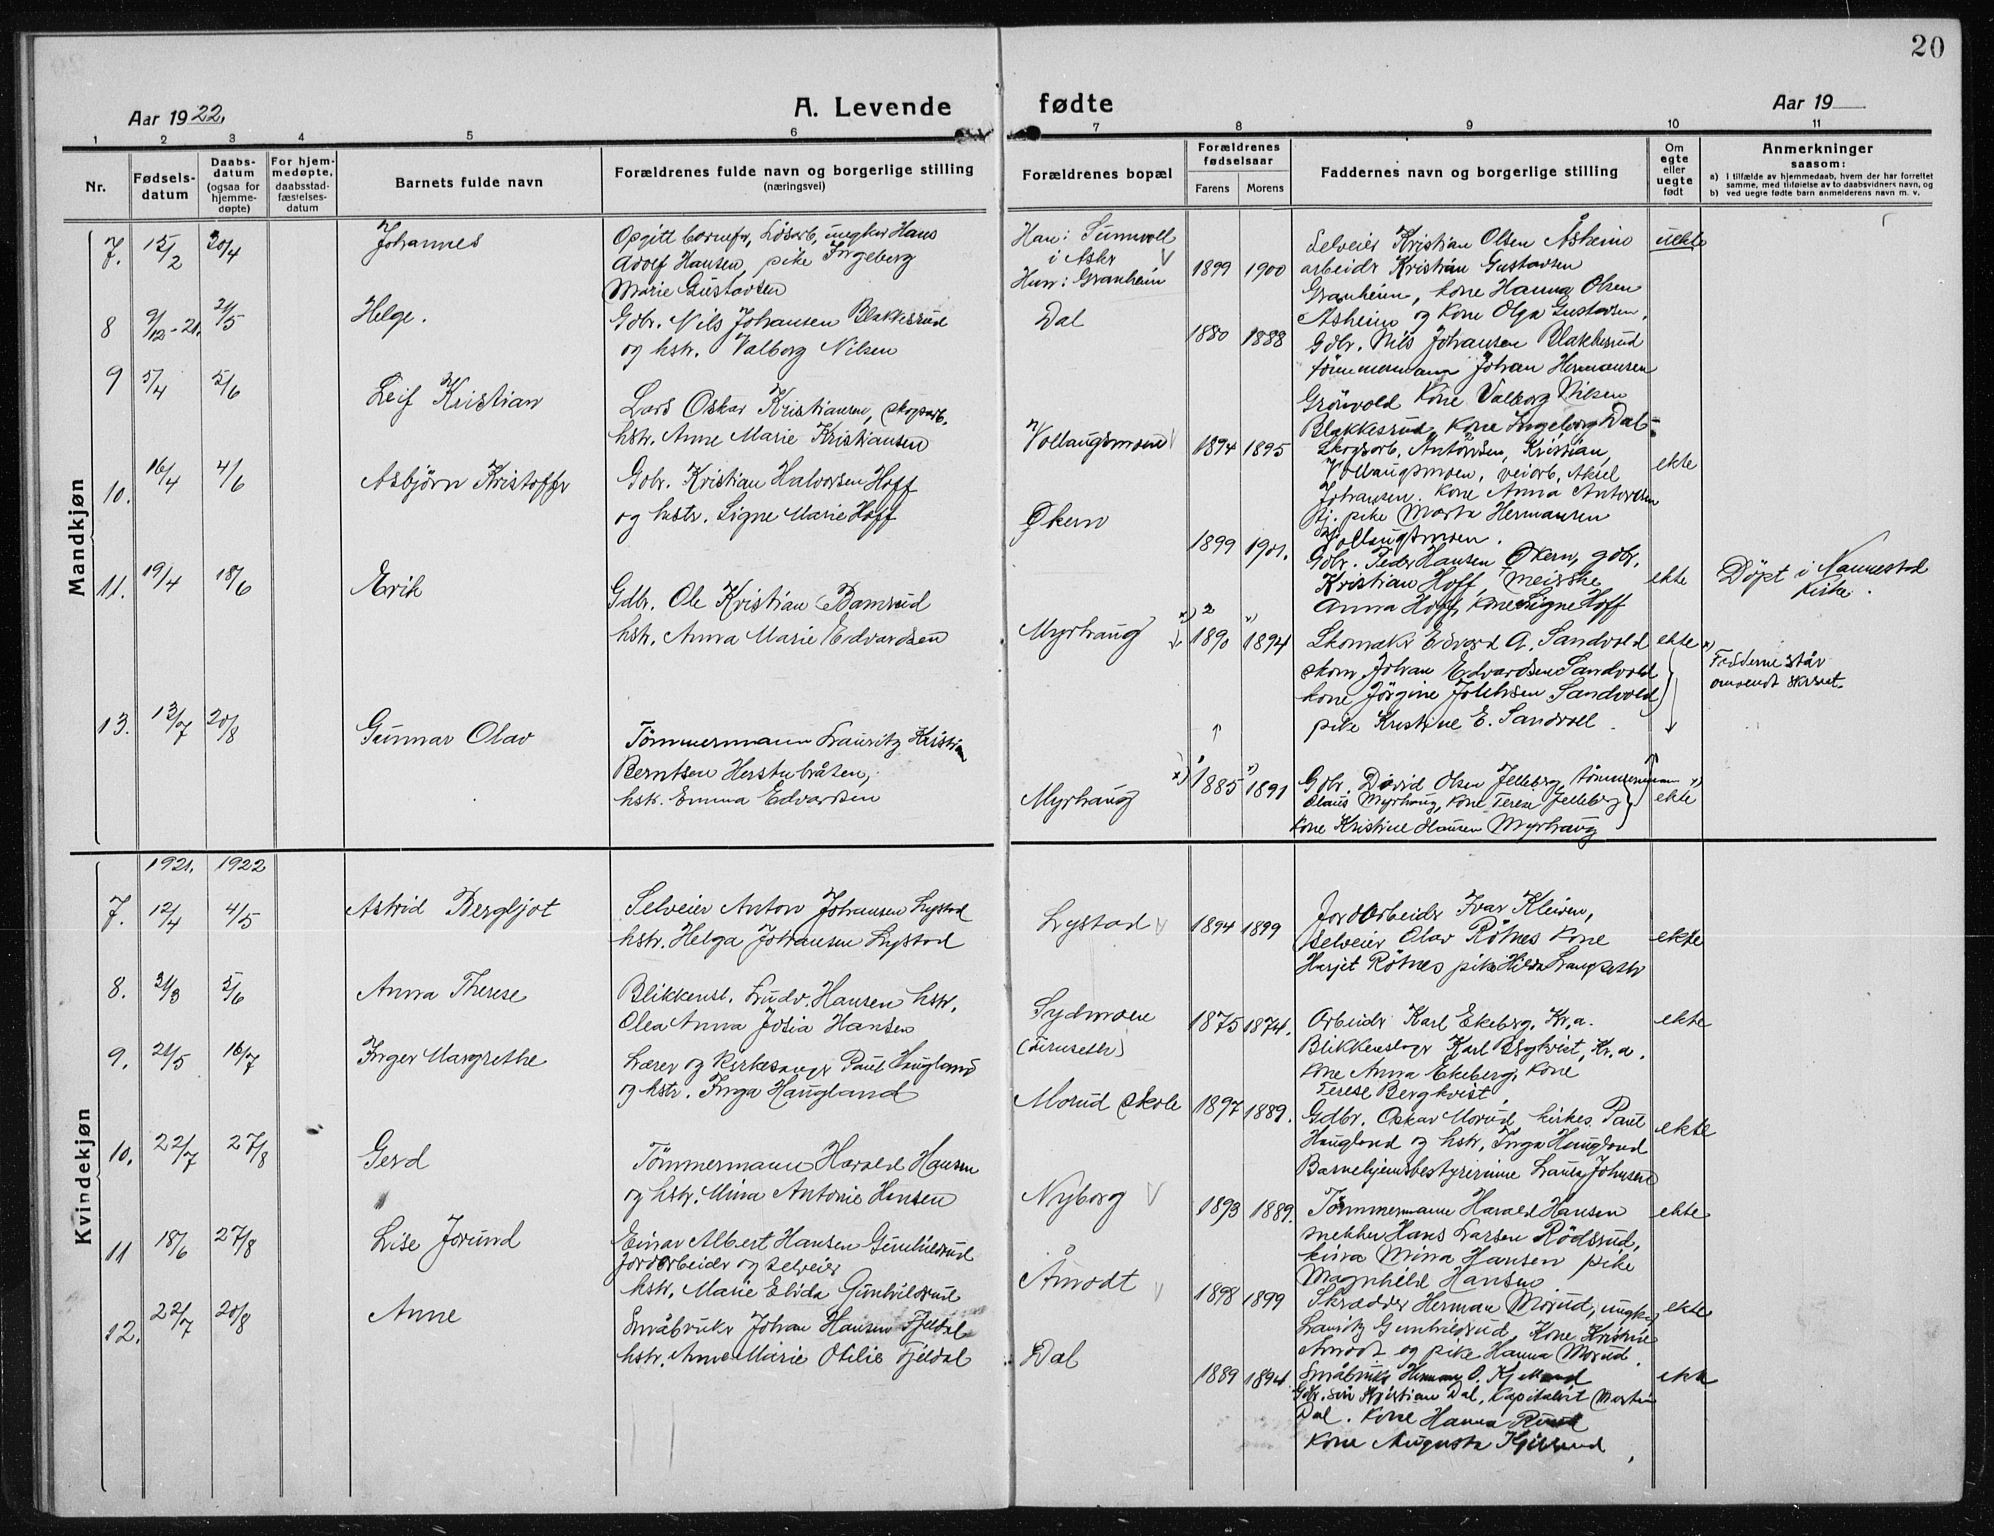 20
Aar 1922.
A. Levende fødte
Aar 19
1 2 3 4 5 6 7 8 9 10 11
Nr.
Fødsels-
datum
Daabs-
datum
(ogsaa for
hjemme-
døpte)
For hjem-
medøpte,
daabsstad-
fæstelses-
datum
Barnets fulde navn
Forældrenes fulde navn og borgerlige stilling
(næringsvei)
Forældrenes bopæl
Forældrenes
fødselsaar
Farens Morens
Faddernes navn og borgerlige stilling
Om
egte
eller
uegte
født
Anmerkninger
saasom:
a) I tilfælde av hjemmedaab, hvem der har forrettet
samme, med tilføielse av to daabsvidners navn, og
b) ved uegte fødte barn anmelderens navn m. v.
Mandkjøn
7. 15/2 30/4 Johannes
Opgitt barnefr, Løsarb, ungkar Hans
Adolf Hansen, pike Ingeberg
Marie Gustavsen
Han: Sunnvoll
i Askr
Hun: Granheim
1899 1900
Selveier Kristian Olsen Åsheim
arbeidr Kristian Gustavsen
Granheim, kone Hanna Olsen
Åsheim og kone Olga Gustavsen.
uekte
8 9/12-21. 21/5 Helge.
Gdbr. Nils Johansen Blakkesrud
og hstr. Valborg Nilsen
Dal
1880 1888
Gdbr. Nils Johansen Blakkesrud
tömmermann Johan Hermansen
Grönvold kone Valborg Nilsen
Blakkesrud, kone Ingeborg Dal
9 5/4 5/6 Leif Kristian
Lars Oskar Kristiansen, skogsarb.
hstr. Anne Marie Kristiansen
Vollaugsmoen
1894 1895
Skogsarb. Antonsen, Kristian,
Vollaugsmoen, veiarb. Aksel
Johansen. Kone Anna Antonsen
tj. pike Marta Hermansen
Vollaugsmoen.
ekte
10. 16/4 4/6 Asbjörn Kristoffer
Gdbr. Kristian Halvorsen Hoff
og hustr. Signe Marie Hoff
Økern
1899 1901.
Gdbr. Peder Hansen Økern, gdbr.
Kristian Hoff, meierske
Anna Hoff, kone Signe Hoff
ekte
Döpt i Nannestad
Kirke.
11. 19/4 18/6 Erik
Gdbr. Ole Kristian Bamrud
hstr. Anna Marie Edvardsen
Myrhaug
1890 1894
Skomakr Edvard A. Sandvold
skom. Johan Edvardsen Sandvold
kone Jörgine Johansen Sandvold
pike Kristine E. Sandvoll.
ekte
Fadderne står
omvendt skrevet.
13. 13/7 20/8 Gunnar Olav
Tömmermann Lauritz Kristian
Berntsen Herstubråten,
hstr. Emma Edvardsen
Myrhaug
1885 1891
Gdbr. David Olsen Jelleberg, tömmerman
Olaus Myrhaug, kone Terese Jelleberg
Kone Kristine Hansen Myrhaug
ekte
Kvindekjøn
1921. 1922
7. 12/4 4/5 Astrid Bergljot
Selveier Anton Johansen Lystad
hstr. Helga Johansen Lystad
Lystad
1894 1899
Jordarbeidr Ivar Kleiven,
selveier Olav Rötnes Kone
Marjit Rötnes pike Hilda Langseth
ekte
8. 31/3 5/6 Anna Therese
Blikkensl. Ludv. Hansen hstr.
Olea Anna Josia Hansen
Sydmoen
1875 1874.
Arbeidr Karl Ekeberg, Kr.a.
Blikkenslagr Karl Bergkvist, Kr.a.
Kone Anna Ekeberg, Kone
Terese Bergkvist.
ekte
9. 21/5 16/7 Inger Margrethe
Lærer og kirkesanger Paul Haugland
og hstr. Inga Haugland
Morud skole
1897 1889.
Gdbr. Oskar Morud, kirkes. Paul
Haugland og hstr. Inga Haugland
Barnehjemsbestyrerinne Laura Johnsen
ekte
10. 22/7 27/8 Gerd
Tömmermann Harald Hansen
og hstr. Mina Antonie Hansen
Nyborg
1893 1889.
Tömmermann Harald Hansen
snekker Hans Larsen Rödsrud,
Mina Hansen pike
Magnhild Hansen.
ekte
11 18/6 27/8 Lise Jorund
Einar Albert Hansen Gunhildrud
Jordarbeidr og selveier
hstr. Marie Elida Gunhildrud
Åmodt
1898 1899
Skrædder Herman Morud, ungkar
Lauritz Gunhildrud, Kone Kristine
Åmodt og pike Hanna Morud.
ekte
12. 22/7 20/8 Anne
Småbrukr Johan Hansen Fjeldal
hstr. Anne Marie Otilie Fjeldal
Dal
1889 1894
Småbrukr Herman O.
Gdbr. sön Kristian Dal, Kapitalist Martin
Dal. Kone Hanna Ruud
Kone Augusta
ekte